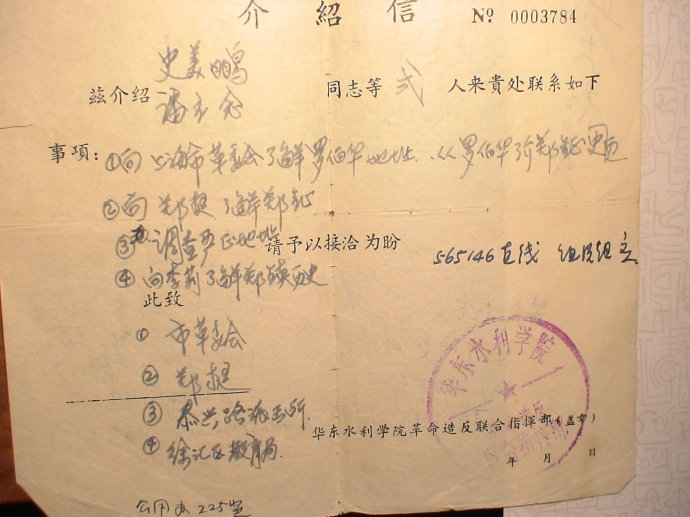 介紹信 No 0003784
史美鸣
兹介绍 同志等 弍 人来貴处联系如下
潘
事項：①向上海市革委会了解罗伯华地址、从罗伯华了郑
②向郑挺了解郑
③ 调查严 地址 请予以接洽为盼
565146直线 组织组
④向李莉了解郑瑛历史
此致
① 市革委会
② 郑挺
③ 泰兴路派出所
④ 徐汇区教育局
华东水利学院
华东水利学院革命造反联合指揮部(盖章)
年 月 日
公用办225室